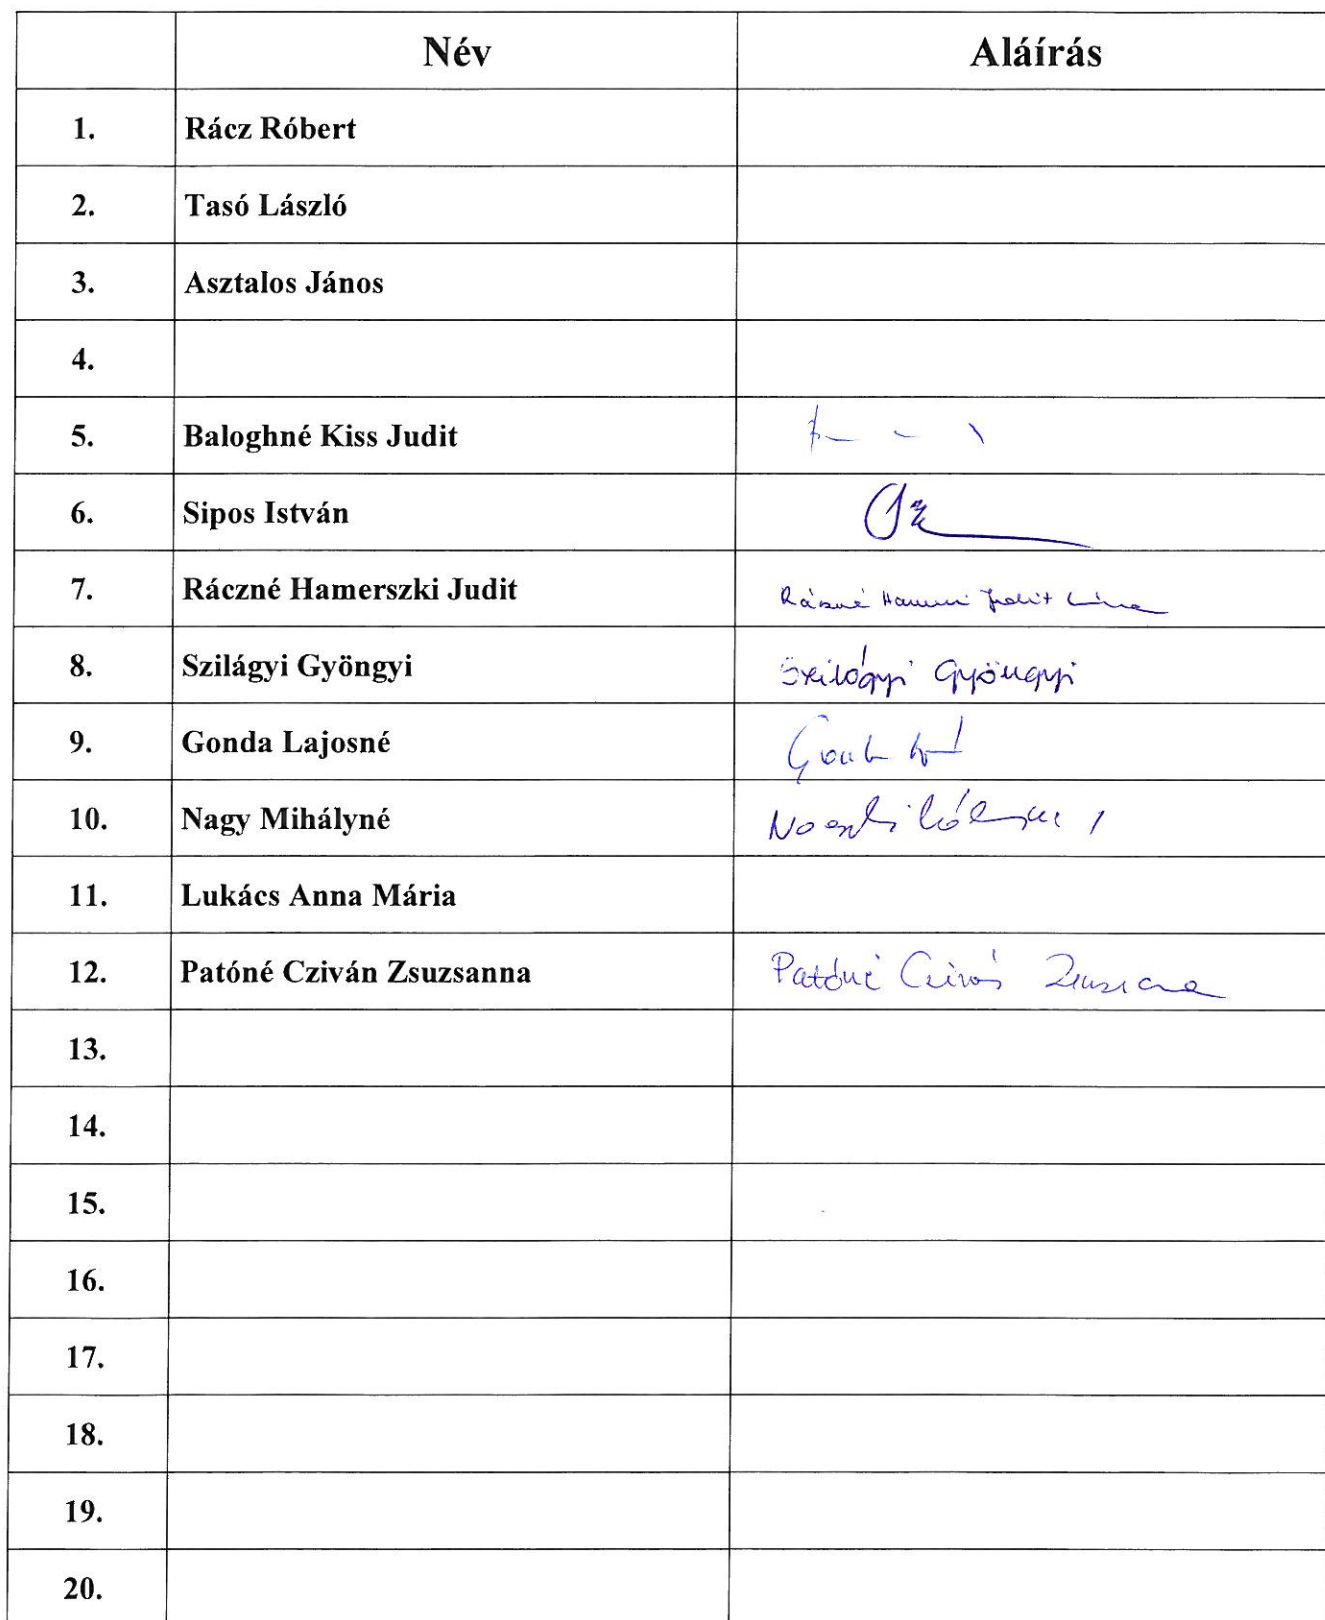 Név Aláírás
1. Rácz Róbert
2. Tasó László
3. Asztalos János
4.
5. Baloghné Kiss Judit
6. Sipos István
7. Ráczné Hamerszki Judit
8. Szilágyi Gyöngyi Szilágyi Gyöngyi
9. Gonda Lajosné
10. Nagy Mihályné
11. Lukács Anna Mária
12. Patóné Cziván Zsuzsanna Patóné
13.
14.
15.
16.
17.
18.
19.
20.